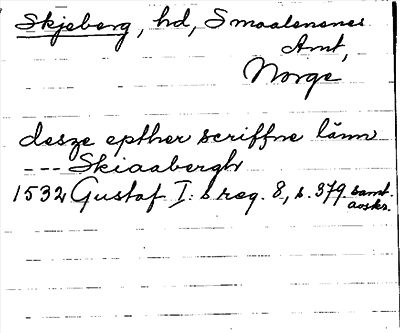 Skjeberg, hd, Smaalenenes
Amt,
Norge
desze epther scriffne länn
--- Skiaabergh
1532 Gustaf I: s reg. 8, s. 379. samt.
avskr.